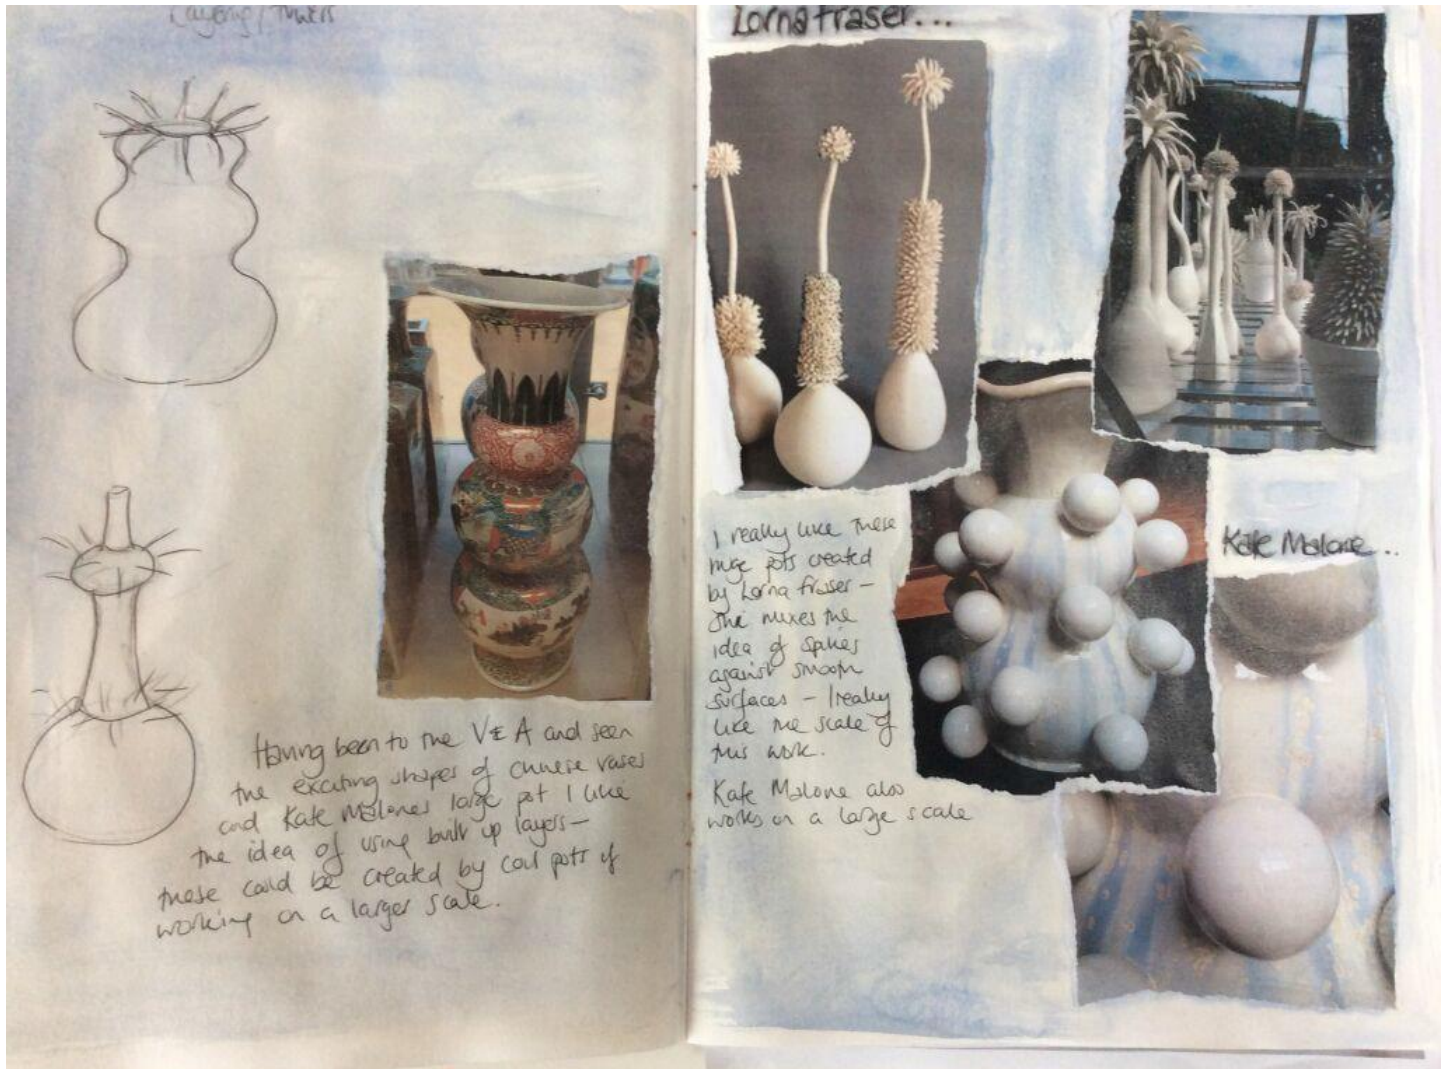 Layering / Tiers
Having been to the V & A and seen
the exciting shapes of chinese vases
and Kate Malones large pot I like
the idea of using built up layers –
these could be created by coil pots if
working on a larger scale.
Lorna Fraser...
I really like these
huge pots created
by Lorna Fraser –
she mixes the
idea of spikes
against smooth
surfaces – I really
like the scale of
this work.
Kate Malone also
works on a large scale
Kate Malone...